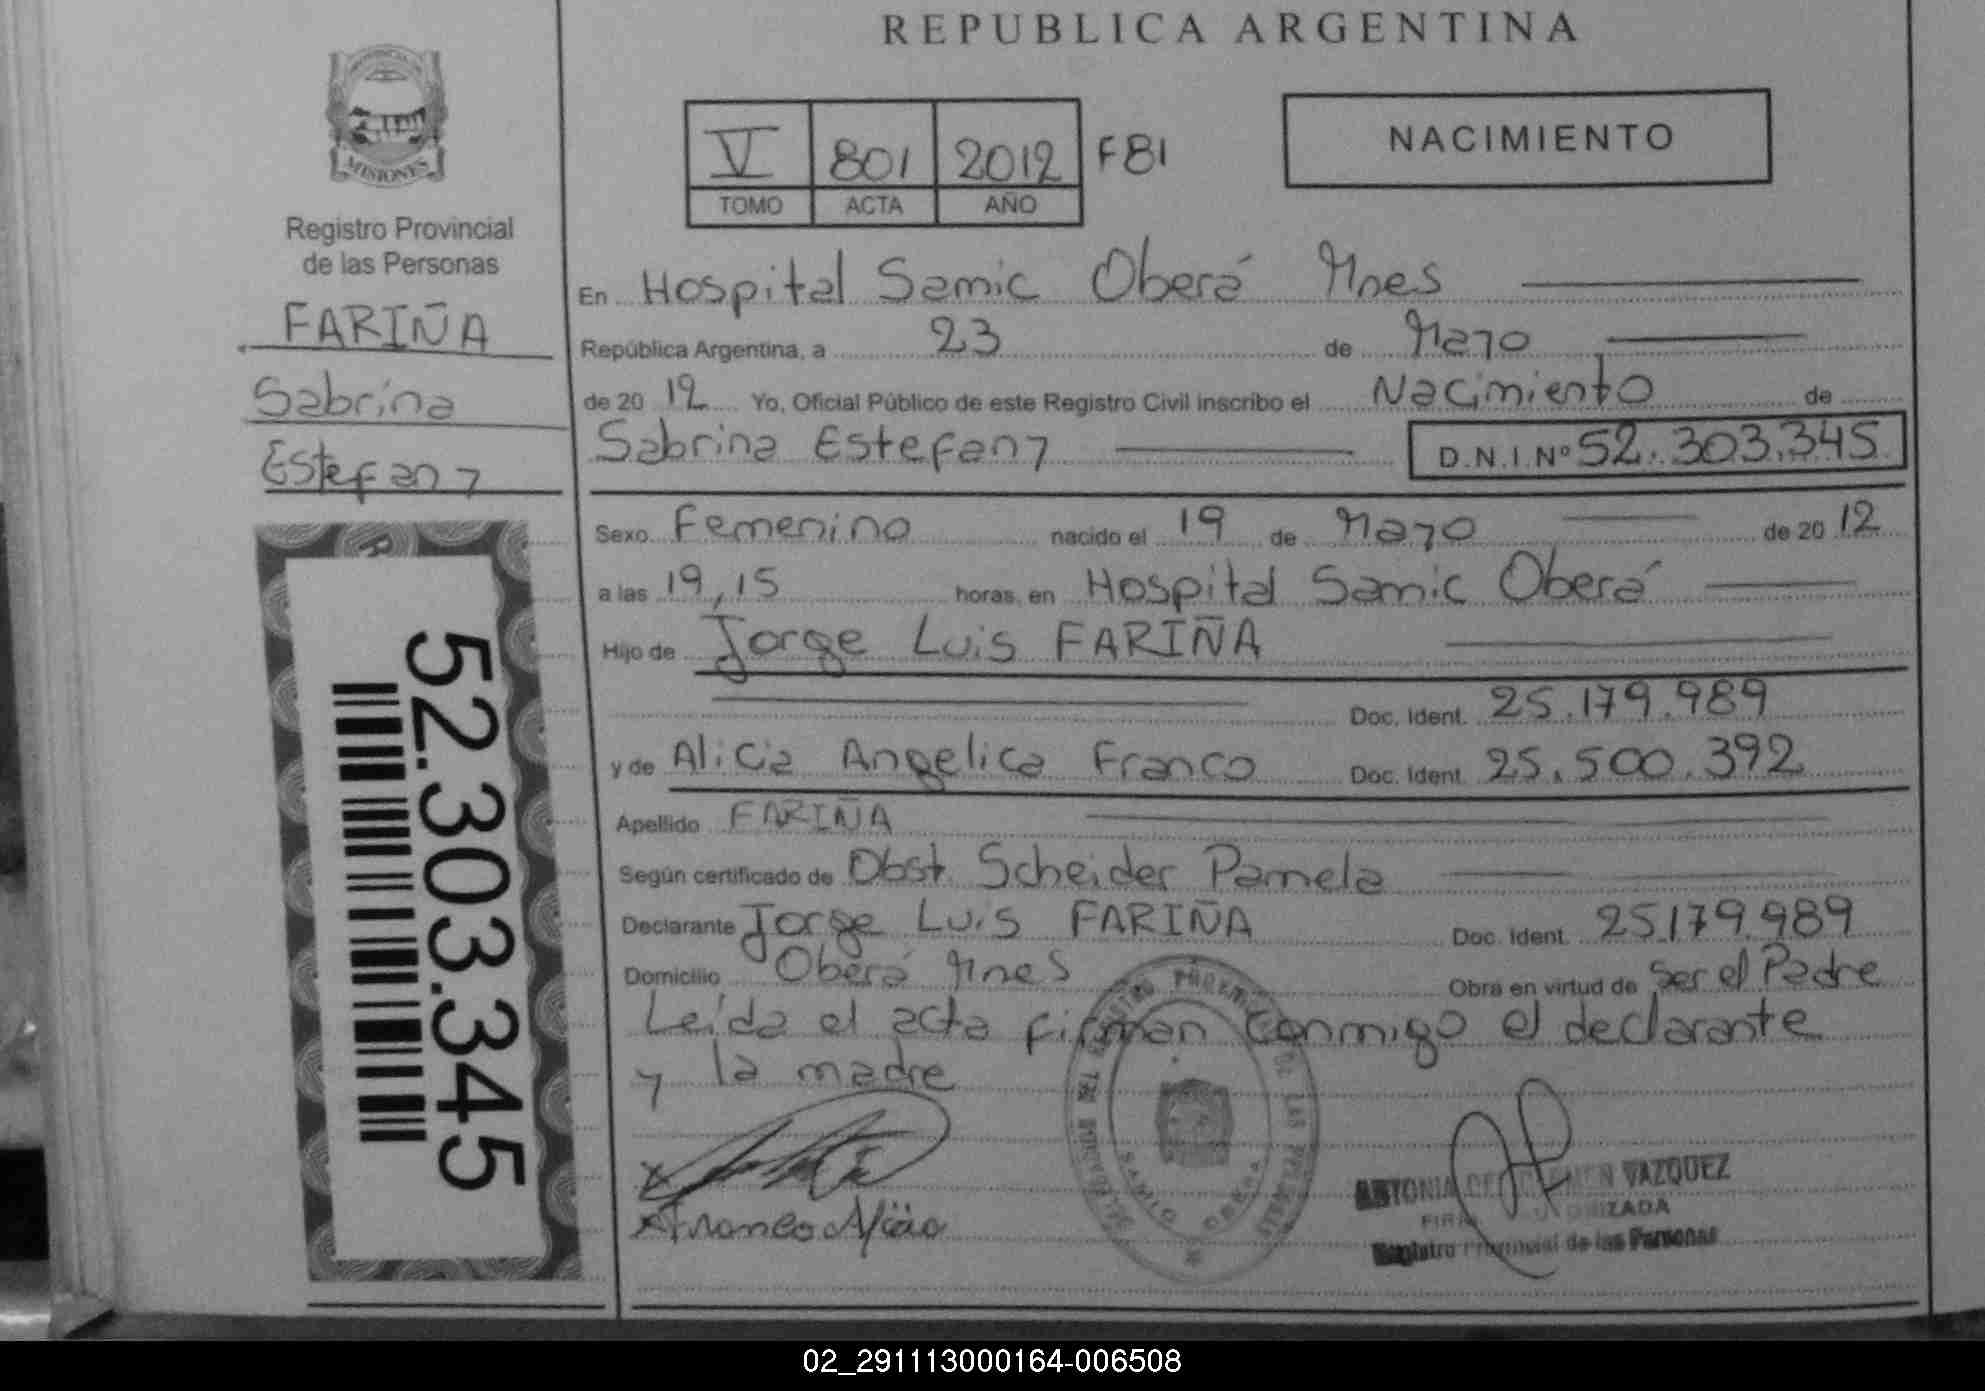 REPUBLICA ARGENTINA
MISIONES
Registro Provincial
de las Personas
FARIÑA
Sabrina
Estefany
52.303.345
V 801 2012 F81
TOMO ACTA AÑO
NACIMIENTO
En Hospital Samic Oberá Mnes
República Argentina, a 23 de Mayo
de 2012 Yo, Oficial Público de este Registro Civil inscribo el Nacimiento de
Sabrina Estefany D.N.I. Nº 52.303.345
Sexo Femenino nacido el 19 de Mayo de 2012
a las 19,15 horas, en Hospital Samic Oberá
Hijo de Jorge Luis FARIÑA
Doc. Ident. 25.179.989
y de Alicia Angelica Franco Doc. Ident. 25.500.392
Apellido FARIÑA
Según certificado de Obst. Scheider Pamela
Declarante Jorge Luis FARIÑA Doc. Ident. 25.179.989
Domicilio Oberá Mnes Obra en virtud de Ser el Padre
Leída el acta firman conmigo el declarante
y la madre
Franco Alicia
VAZQUEZ
Registro Provincial de las Personas
02_291113000164-006508